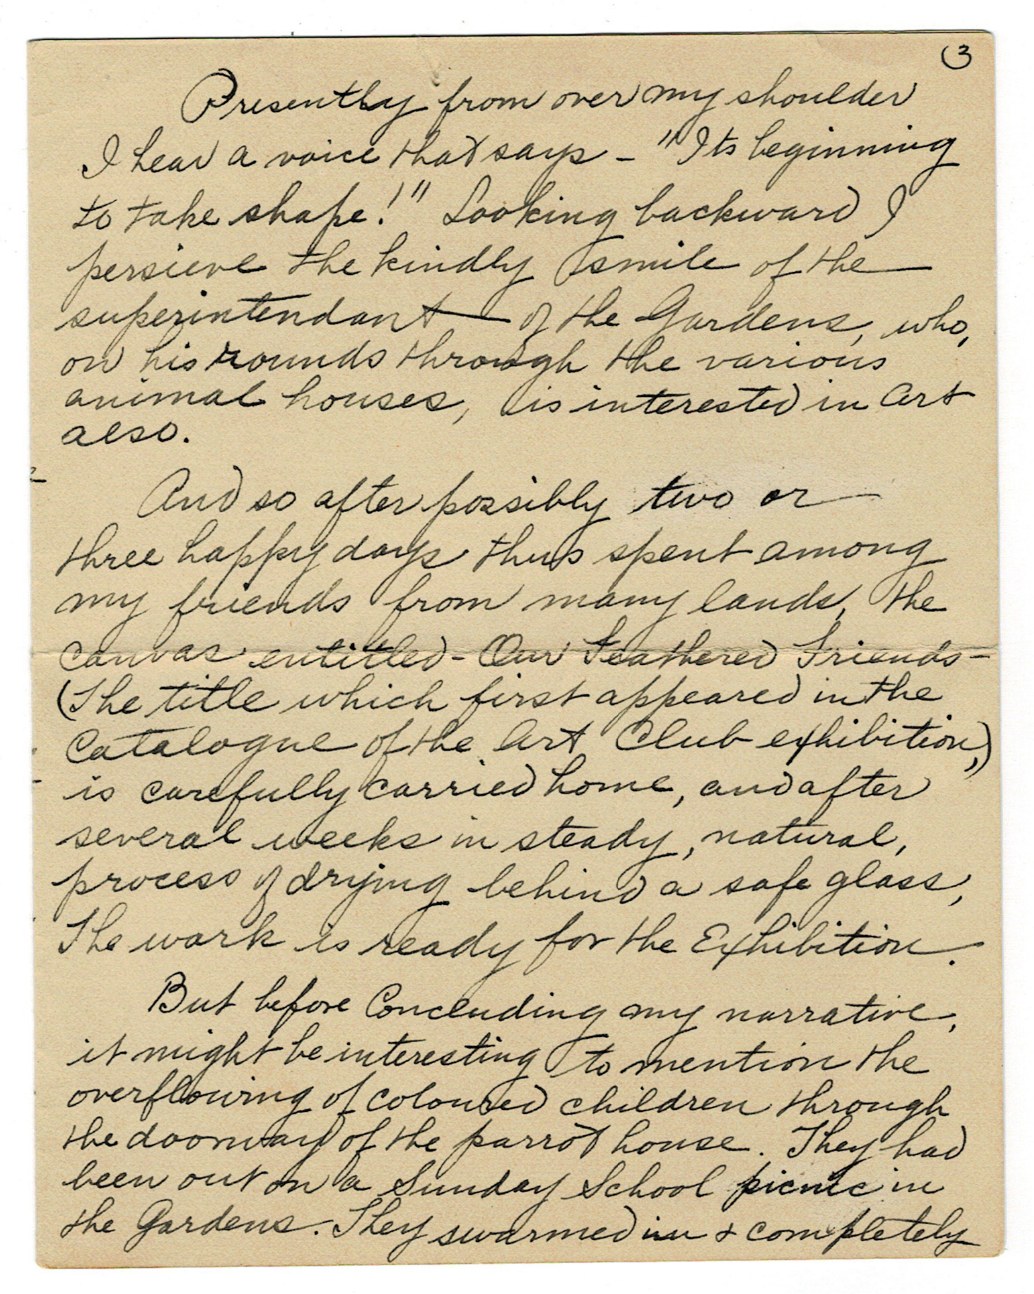 3
Presently from over my shoulder
I hear a voice that says - "Its beginning
to take shape!" Looking backward I
persieve the kindly smile of the
superintendant of the Gardens, who,
on his rounds through the various
animal houses, is interested in Art
also.
And so after possibly two or
three happy days thus spent among
my friends from many lands, the
canvas entitled - Our Feathered Friends -
(The title which first appeared in the
Catalogue of the Art Club exhibition,)
is carefully carried home, and after
several weeks in steady, natural,
process of drying behind a safe glass,
The work is ready for the Exhibition.
But before Concluding my narrative,
it might be interesting to mention the
overflowing of coloured children through
the doorway of the parrot house. They had
been out on a Sunday School picnic in
the Gardens. They swarmed in & completely